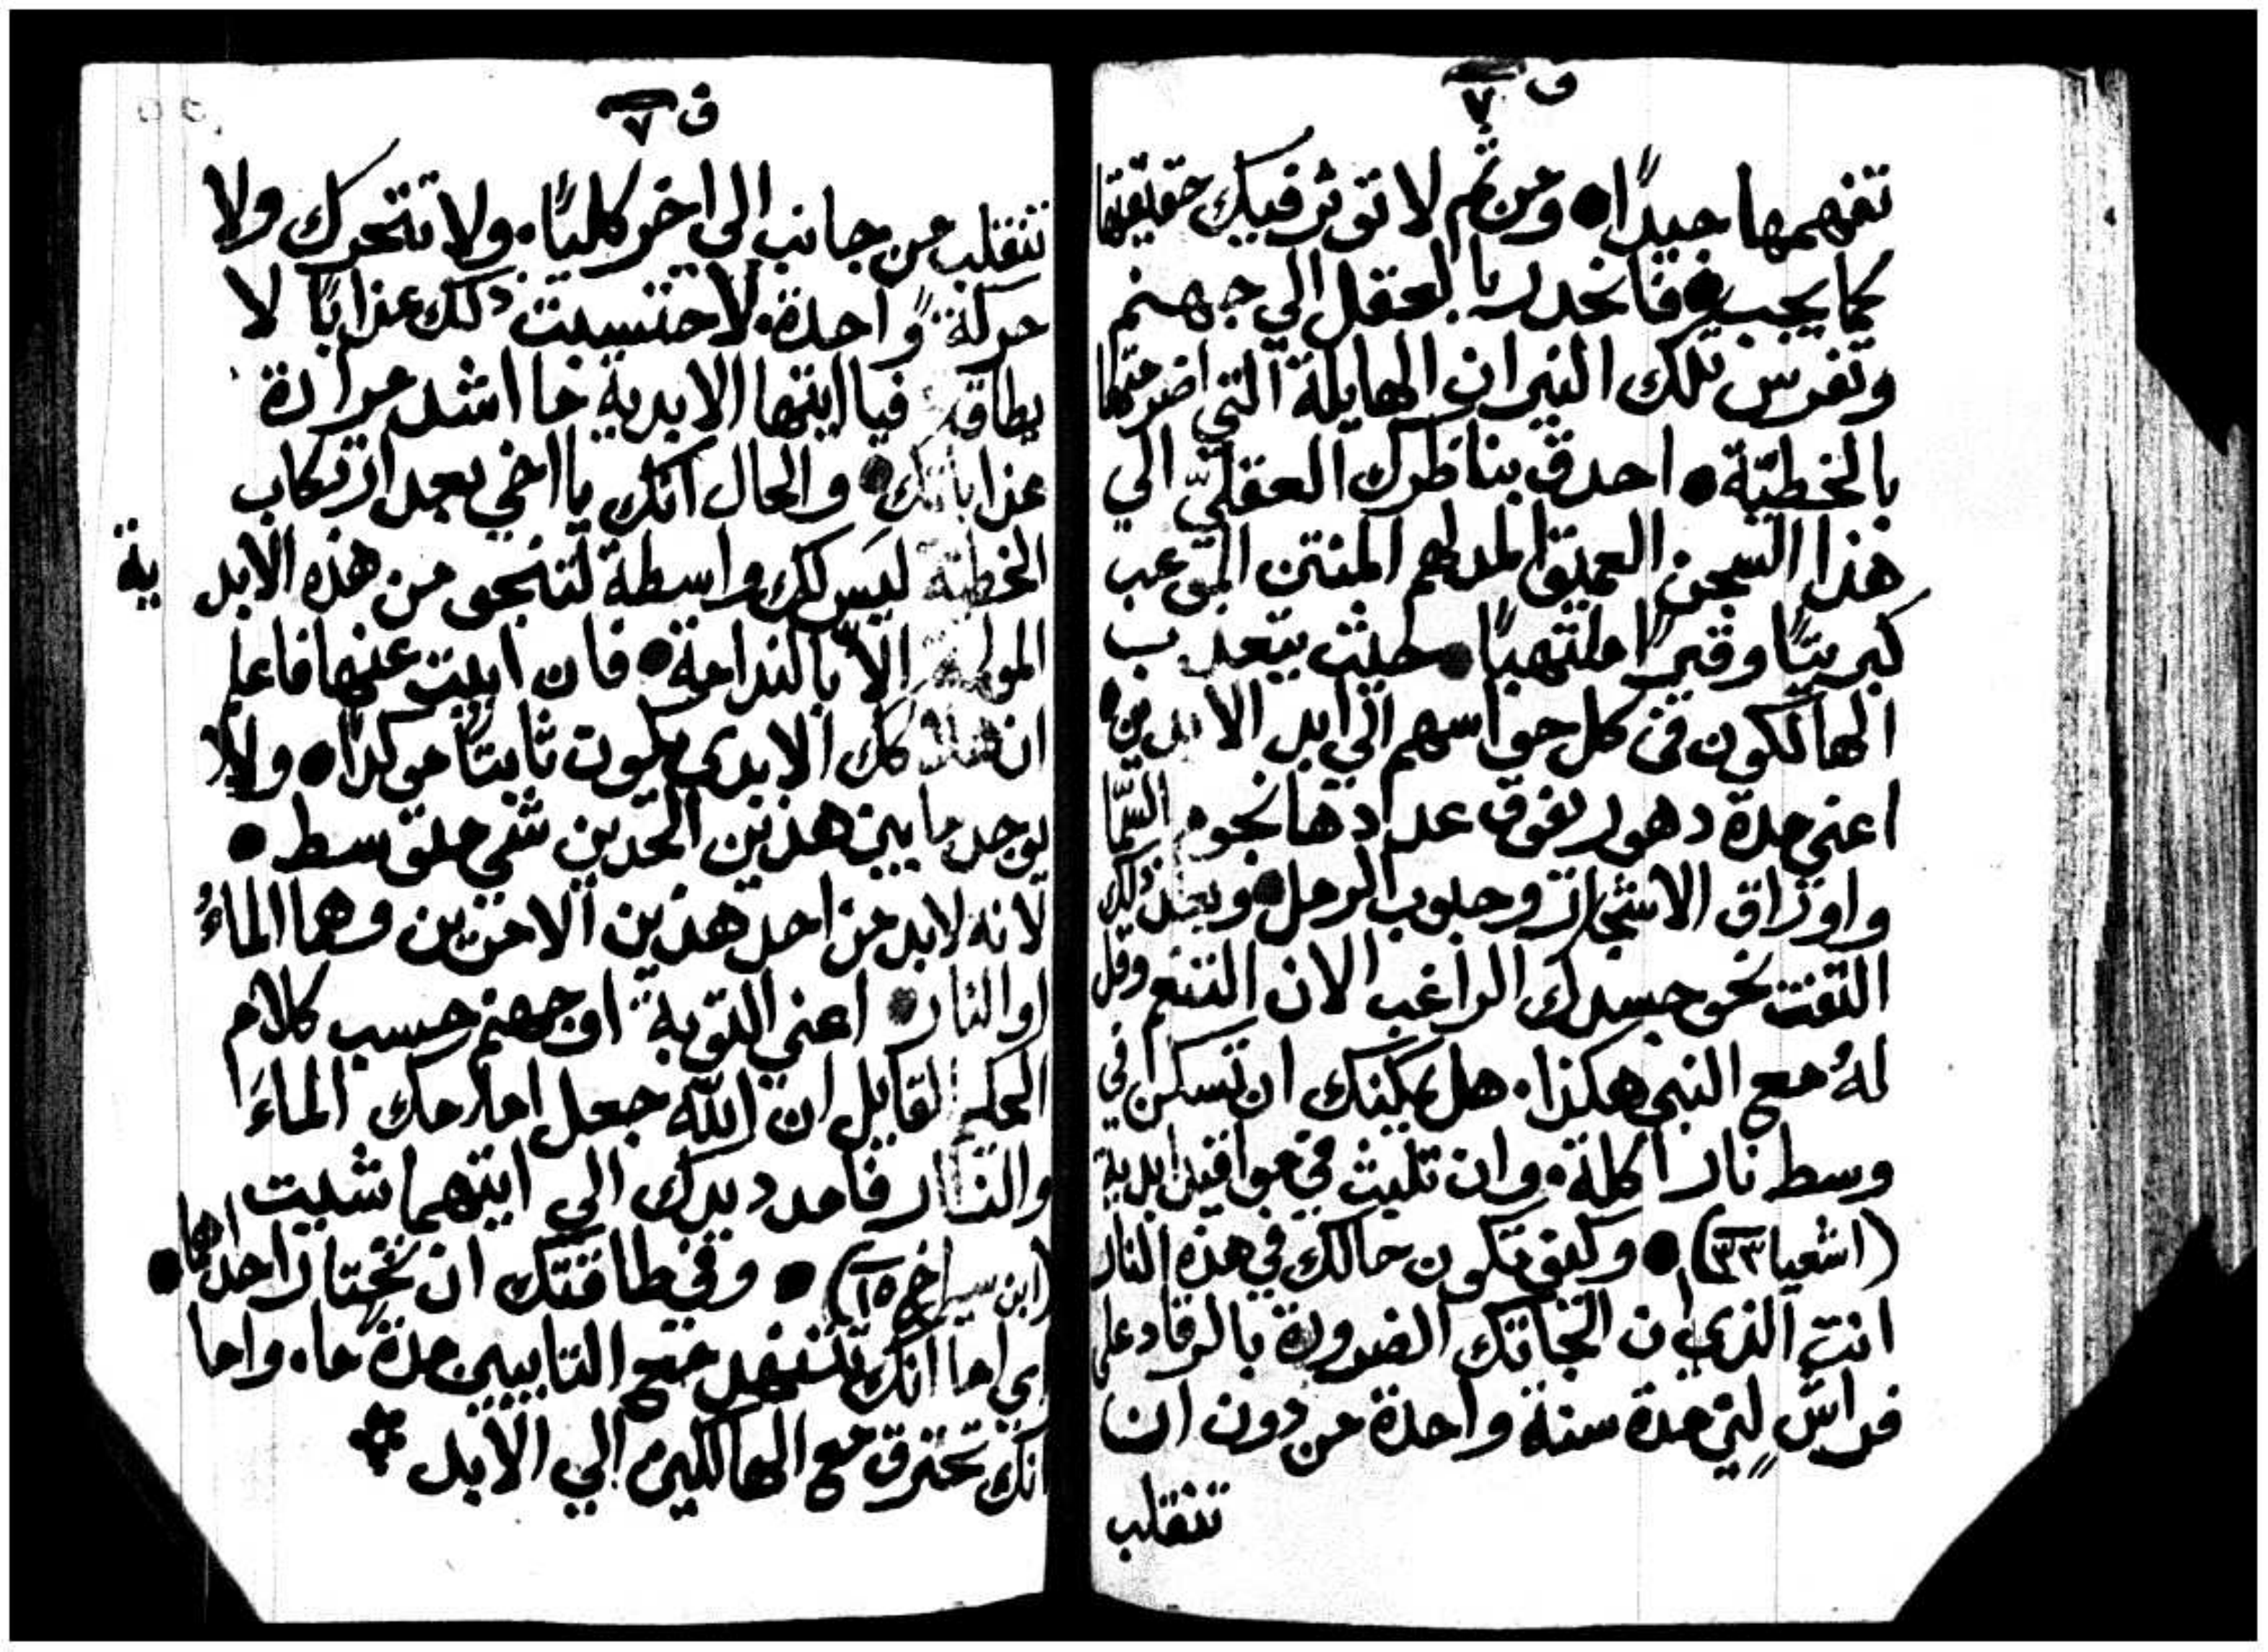 ق ٧
تفهمها جيدًا • ومن ثم لا توثر فيك حقيقتها
كما يجب • فانحدر بالعقل الي جهنم
وتفرس تلك النيران الهايلة التي اضرمتها
بالخطيّة • احدق بناظرك العقليّ الي
هذا السجن العميق المدلهم المنتن الموعب
كبريتًا وقيرًا ملتهبًا • حيث يتعذب
الهالكون في كل حواسهم الي ابد الابدين •
اعني مدة دهور يفوق عدادها نجوم السّما
واوراق الاشجار وحبوب الرمل • وبعد ذلك
التفت نحو جسدك الراغب الان التنعم وقل
لهُ مع النبي هكذا . هل يمكنك ان تسكن في
وسط نار اكلة . وان تلبث في مواقيد ابدية
(اشعيا ٣٣) • وكيف تكون حالك في هذه النار
انت الذي ان الجاتك الضرورة بالرقاد علي
فراشٍ ليّن مدة سنة واحدة من دون ان
تتقلب
ق ٧
تتقلب من جانب الي اخر كليًا . ولا تتحرك ولا
حركة ً واحدة . لاحتسبت ذلك عذابًا لا
يطاق فيا ايتها الابدية ما اشد مرارة
عذاباتك • والحال انك يا اخي بعد ارتكاب
الخطية ليَس لك واسطة لتنجو من هذه الابدية
المولمة الاّ بالندامة • فان ابيت عنها فاعلم
ان هلاكك الابدي يكون ثابتًا موكدًا • ولا
يوجد ما بين هذين الحدين شي متوسط •
لانه لابد من احد هذين الامرين وهما الماءُ
او النار • اعني التوبة او جهنم حسب كلام
الحكيم القايل ان اللّه جعل امامك الماءَ
والنار فامدد يدك الي ايتهما شيت
(ابن سيراخ ١٥) • وفي طاقتك ان تختار احداهما •
اي اما انك تضطهد مع التايبين مدة ما . واما
انك تحترق مع الهالكين الي الابد